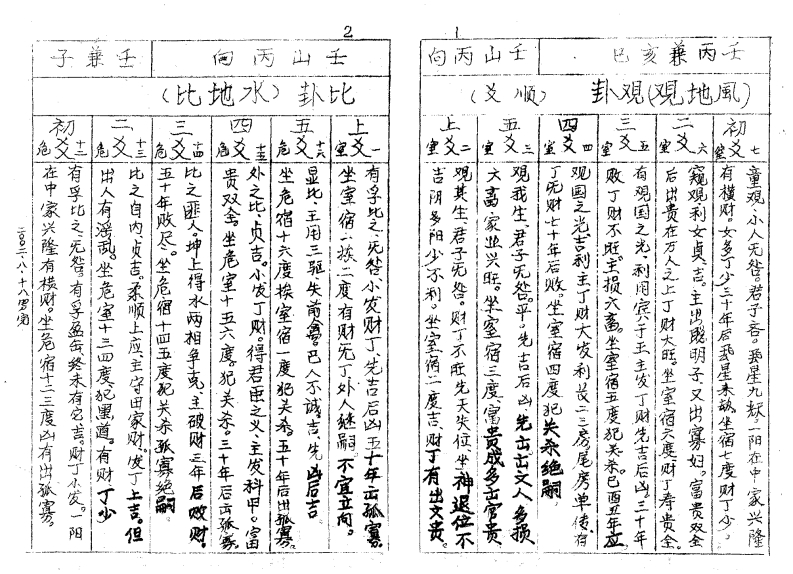 1
壬丙兼亥巳
壬山丙向
風地観(观卦
(顺爻)
初爻七室
童观,小人无咎。君子吝。
有横财。女多丁少三十年后
坐宿七度财丁少。
一阳在中家兴隆
二爻六室
窥观,利女贞,吉。主出聪明子又出寡妇。富贵双全
后出贵在万人之上丁财大旺。坐室宿六度财丁寿贵全
三爻五室
有观国之光,利用宾于王,主发丁财先吉后凶。三十年
败丁财不旺。主损六畜。坐室宿五度犯关杀。巳酉丑年应
四爻四室
观国之光,吉利主丁财大发利长二三房尾房单传,有
丁无财七十年后败。坐室宿四度犯关杀绝嗣
五爻三室
观我生,君子无咎。平。先吉后凶先出文人多损
六畜家业兴旺。坐室宿三度,富贵成多出官贵
上爻二室
观其生,君子无咎。财丁不旺先天失位坐神退位不
吉阴多阳少不利。坐室宿二度吉,财丁有出文贵。
2
壬山丙向
壬兼子
比卦(水地比)
上爻一室
有孚比之,无咎小发财丁,先吉后凶五十年出孤寡。
坐室宿一挨二度有财无丁外人继嗣。不宜立向。
五爻十六危
显比,王用三驱,失前禽。邑人不诫吉。先凶后吉。
坐危宿十六度挨室宿一度犯关杀。五十年后出孤寡。
四爻十五危
外之比,贞吉。小发丁财。得君臣之义,主发科甲。富
贵双全。坐危室十五六度。犯关杀。三十年后出孤寡。
三爻十四危
比之匪人。坤上得水两相争克,主破财三年后败财。
五十年败尽。坐危宿十四五度犯关杀孤寡绝嗣。
二爻十三危
比之自内,贞吉。柔顺上应,主守田家财。发丁上吉。但
出人有淫乱。坐危室十三四度犯黑道。有财丁少
初爻十二危
有孚比之,无咎。有孚盈缶,终未有它吉。财丁小发。一阳
在中家兴隆有横财。坐危宿十二三度凶有出孤寡。
二〇〇二.八.十八